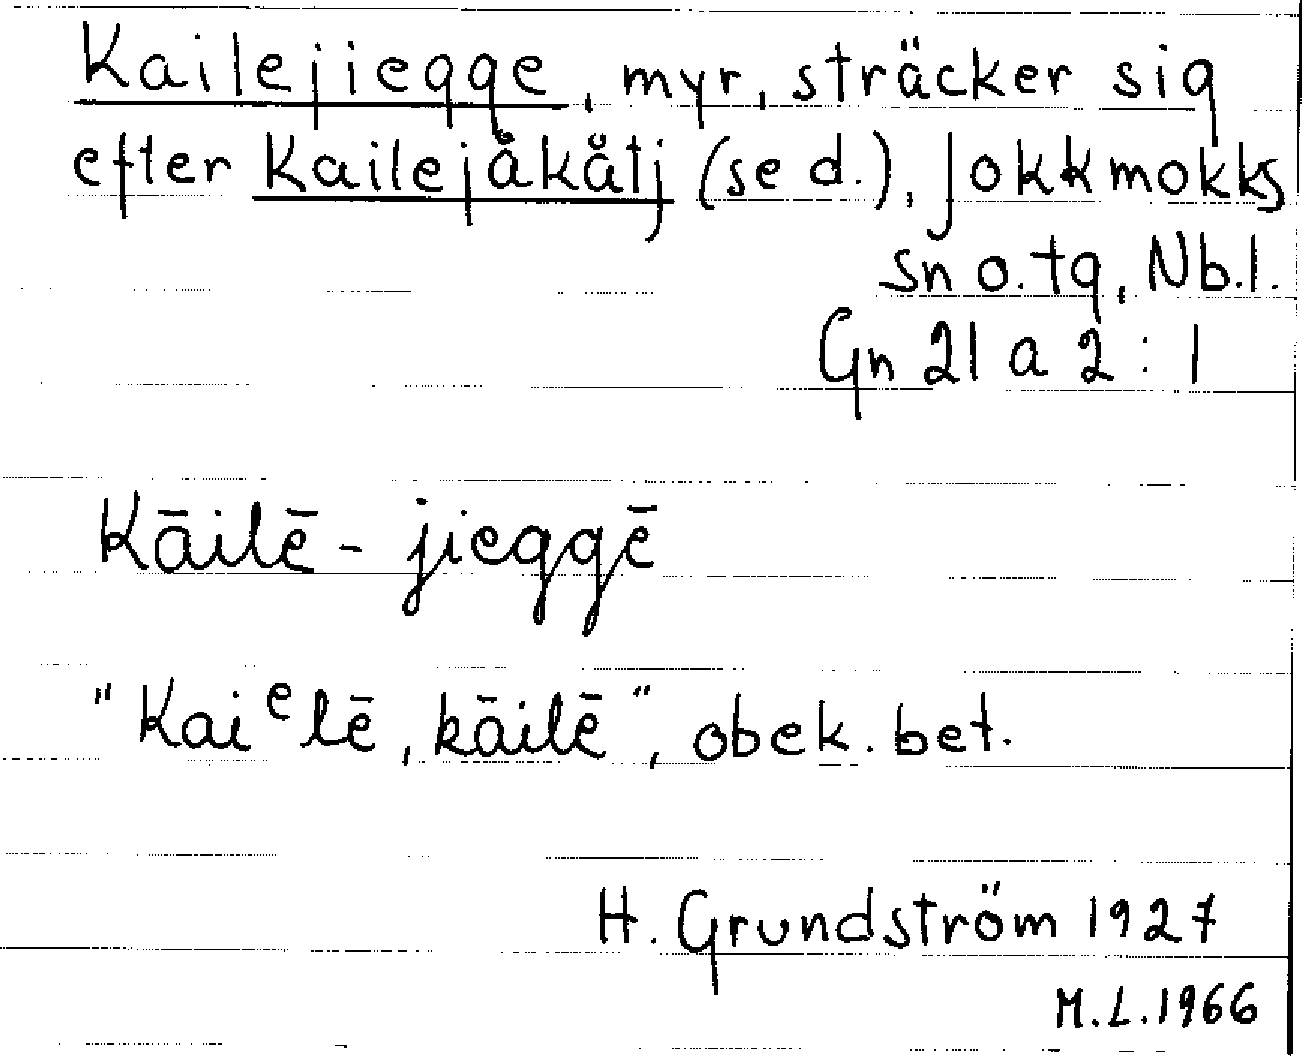 Kailejiegge, myr, sträcker sig
efter Kailejåkåtj (se d.), Jokkmokks
sn o. tg, Nb.l.
Gn 21 a 2 : 1
Kāilē - jieggē
"Kaiᵉlē, kāilē", obek. bet.
H. Grundström 1927
M.L. 1966